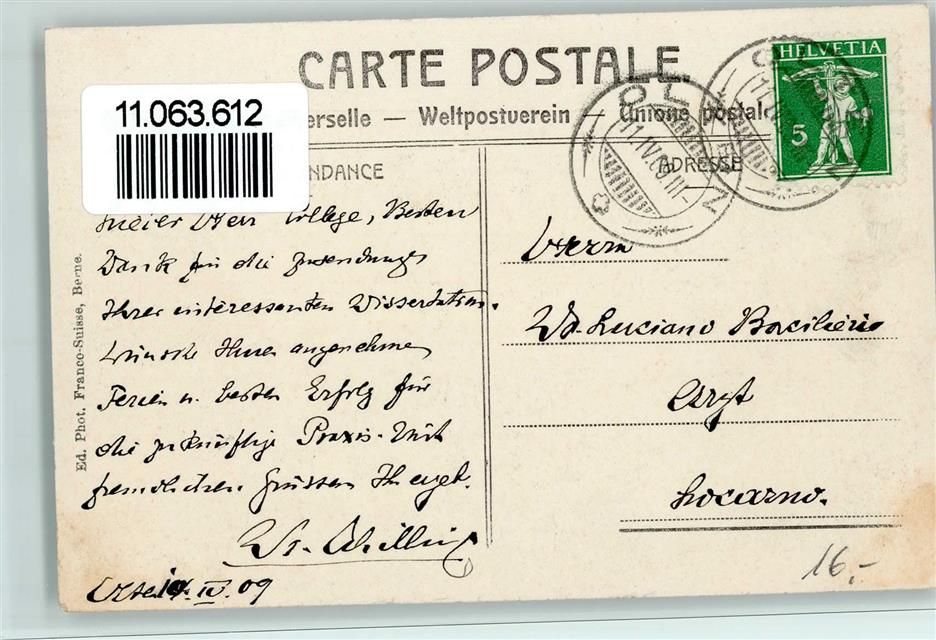 CARTE POSTALE.
erselle — Weltpostverein — Unione postale
11.063.612
NDANCE
ADRESSE
HELVETIA
5
OLTEN
11.IV.09
Herrn College, Besten
Dank für die Zusendung
Ihrer interessanten Dissertation.
Wünsche Ihnen angenehme
Ferien u. besten Erfolg für
die zukünftige Praxis. Mit
freundlichen Grüssen Ihr ergeb.
Olten IV. 09
Herrn
Dr. Luciano Bacilieri
Arzt
Locarno.
Ed. Phot. Franco-Suisse, Berne.
16.-